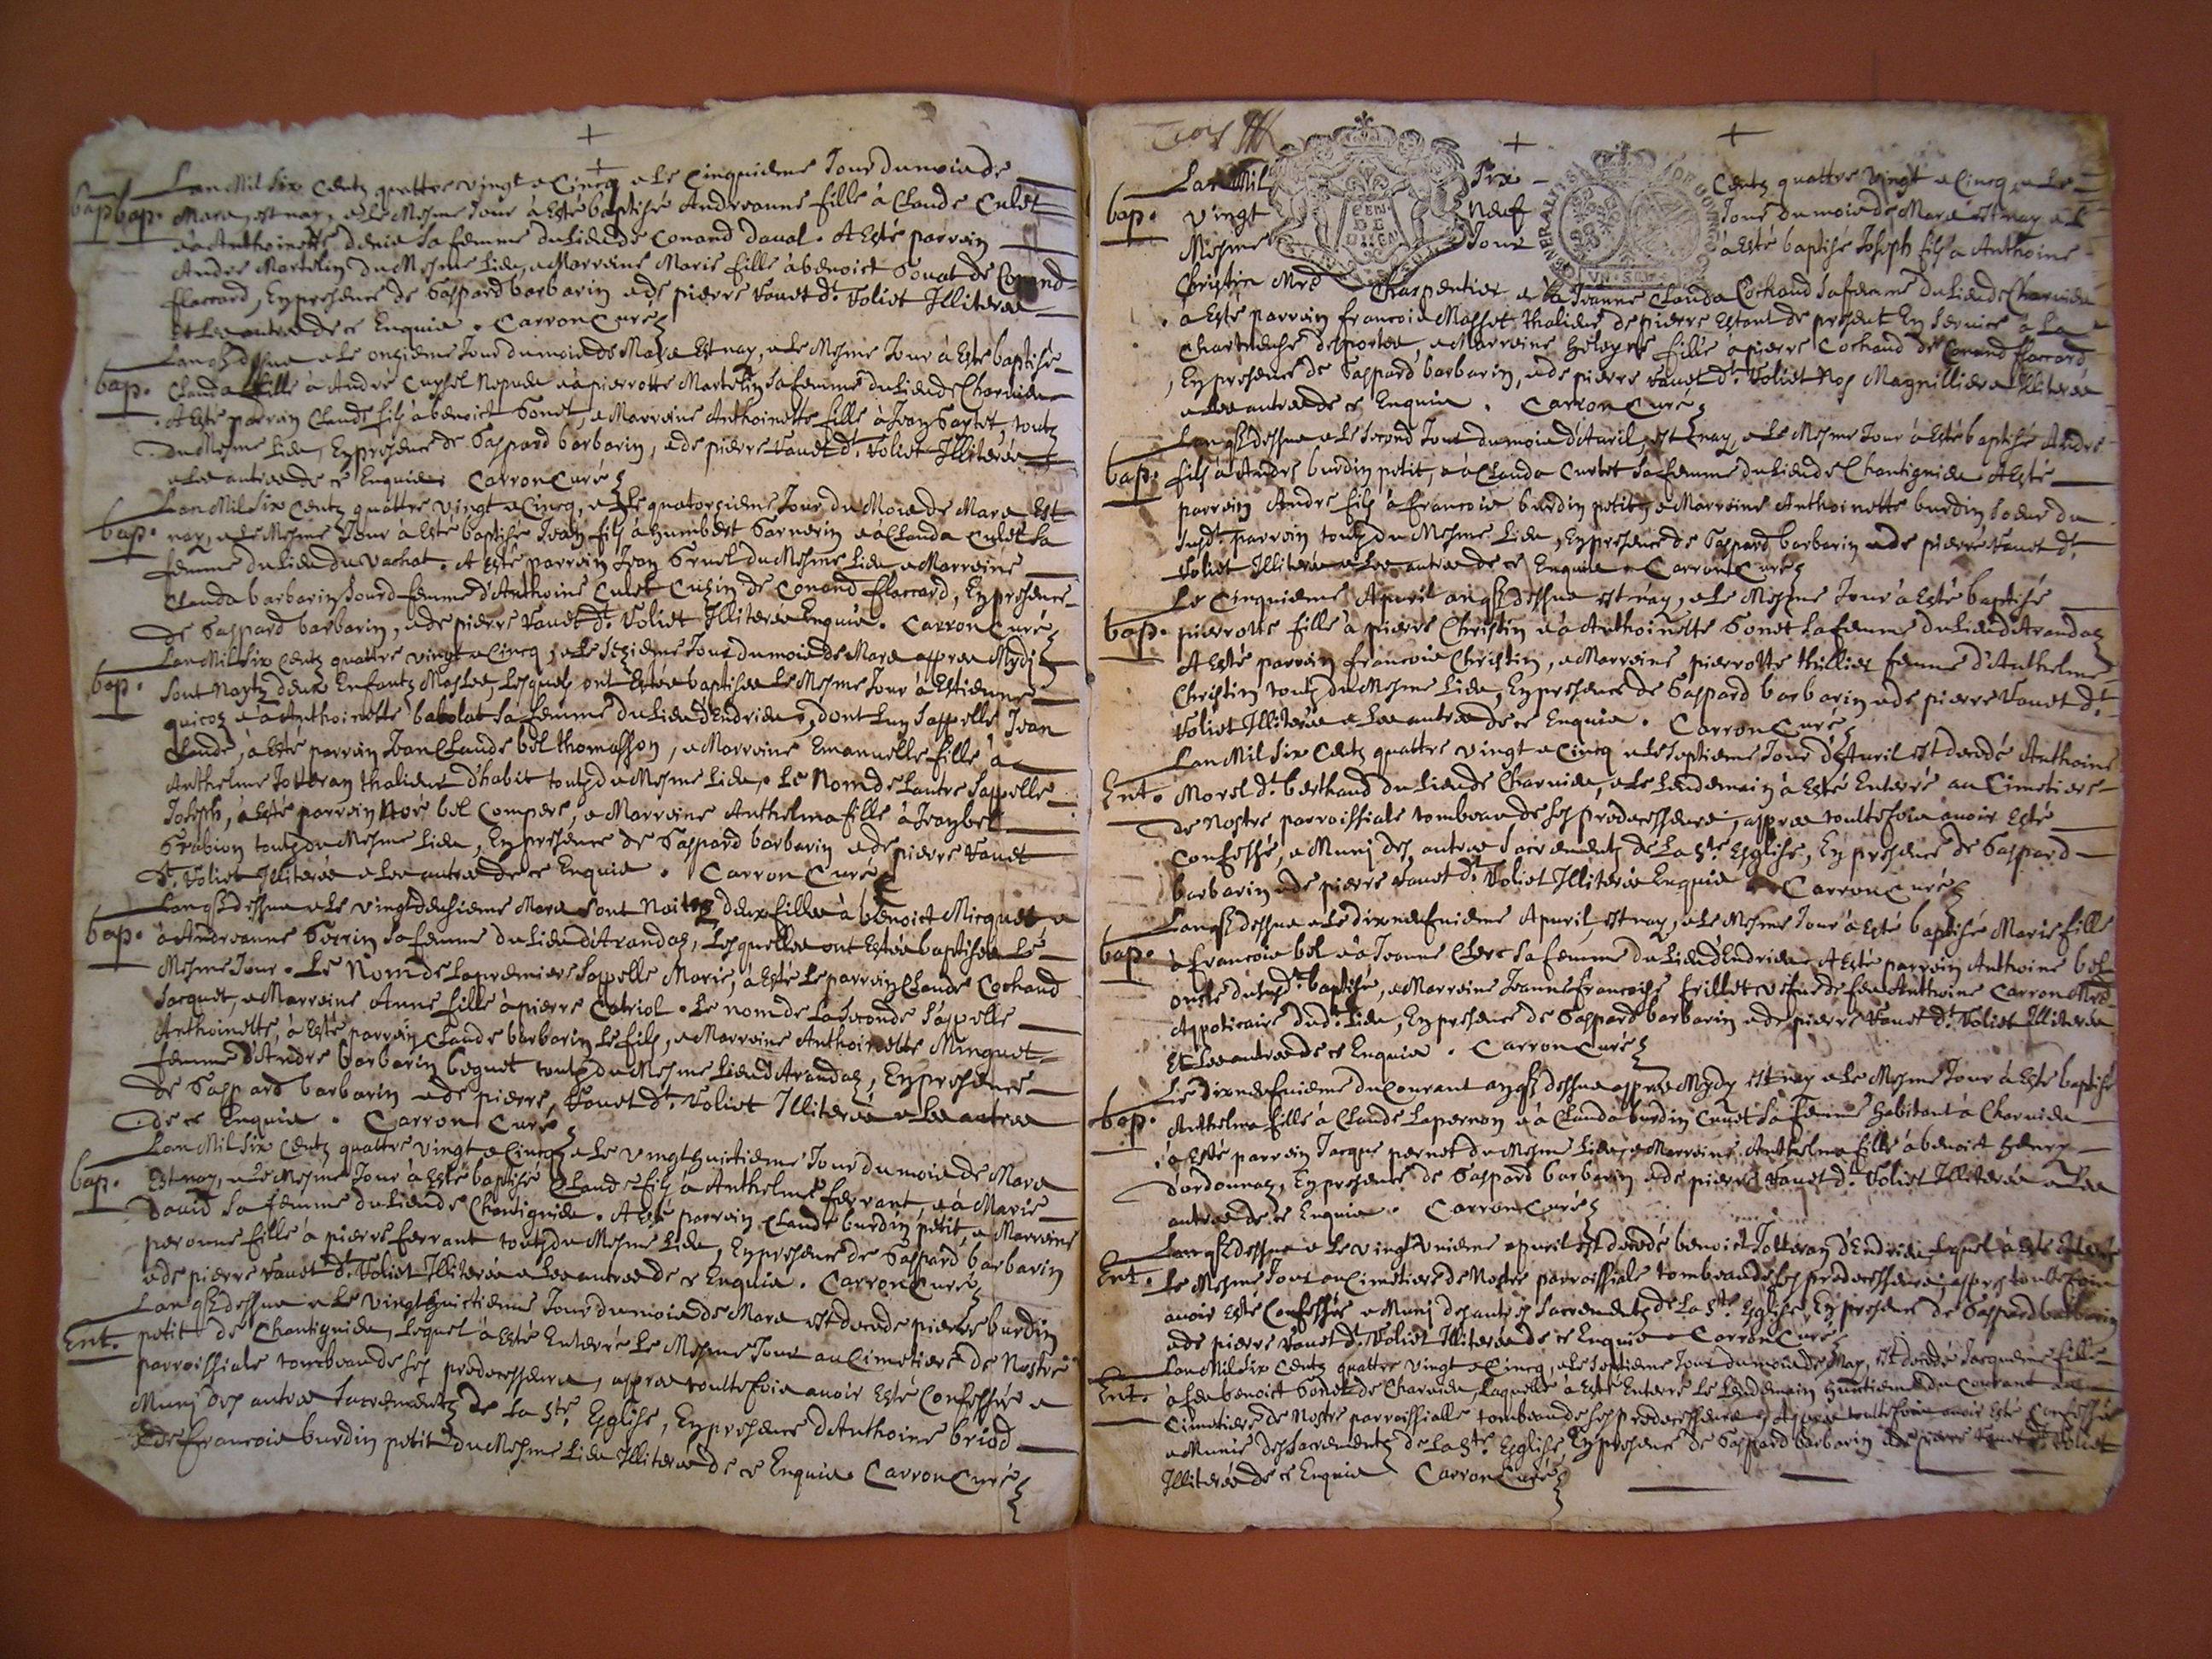 Lan Mil Six Centz quattre vingt e Cincq e Le Cinquieme Jour du mois de
bap. bap. Mars, est nay, e Le Mesme Jour à Esté baptisé Andreanne fille à Claude Culet
e à Anthoinette Denis Sa femme du Lieu de Conand Daval. A Esté parrain
Andre Martelin du Mesme Lieu, e Marreine Marie fille à benoict Gonat de Conand
flaccard, En presence de Gaspard barbarin e de pierre Vanet dt. Voliet Illiteres
Et Les autres de ce Enquis. Carron Curé
Lan qs dessus e Le onzieme Jour du mois de Mars Est nay, e Le Mesme Jour à Esté baptisé
bap. Clauda fille à André Cuzsel Nepueu e à pierrotte Martelin Sa femme du Lieu de Charvieu
A Esté parrain Claude fils à benoict Gonet, e Marreine Anthoinette fille à Jean Sartet, toutz
du Mesme Lieu, En presence de Gaspard barbarin, e de pierre Vanet dt. Voliet Illiteres
e Les autres de ce Enquis. Carron Curé
Lan Mil Six Centz quattre vingt e Cincq, e Le quatorzieme Jour du Mois de Mars Est
bap. nay, e Le Mesme Jour à Esté baptisé Jean fils à humbert Garnerin e à Clauda Culet Sa
femme du Lieu du Vachat. A Esté parrain Jean Gruel du Mesme Lieu e Marreine
Clauda barbarin Sourd femme d'Anthoine Culet Cuzin de Conand flaccard, En presence
de Gaspard barbarin, e de pierre Vanet dt. Voliet Illiteres Enquis. Carron Curé
Lan Mil Six Centz quattre vingt e Cincq, e Le Sezieme Jour du mois de Mars appres Mydi
bap. Sont Naytz deux Enfantz Masles, Lesquels ont Estés baptises Le Mesme Jour à Estienne
e à Anthoinette babolat Sa femme du Lieu d'Endrieu, dont Lun Sappelle Jean
Claude, à Esté parrain Jean Claude bel thomasson, e Marreine Emanuelle fille à
Anthelme Jotteran thalieur d'habit toutz du Mesme Lieu. Le Nom de Lautre Sappelle
Joseph, à Esté parrain bel Compere, e Marreine Anthelma fille à Jean bel
Grabion toutz du Mesme Lieu, En presence de Gaspard barbarin e de pierre Vanet
dt. Voliet Illiteres e Les autres de ce Enquis. Carron Curé
Lan qs dessus e Le vingt deuxieme Mars Sont Naites deux filles à benoict Micquet e
bap. à Andreanne Perrin Sa femme du Lieu d'Arandas, Lesquelles ont Estés baptises Le
Mesme Jour. Le Nom de La premiere Sappelle Marie, à Esté Le parrain Claude Cochand
Jacquet, e Marreine Anne fille à pierre Catriol. Le nom de La Seconde Sappelle
Anthoinette, à Esté parrain Claude barbarin Le fils, e Marreine Anthoinette Minguet
femme d'Andre barbarin boguet toutz du Mesme Lieu d'Arandas, En presence
de Gaspard barbarin e de pierre, Vanet dt. Voliet Illiteres e Les autres
de ce Enquis. Carron Curé
Lan Mil Six Centz quattre vingt e Cincq e Le vingt huictieme Jour du mois de Mars
bap. Est nay, e Le Mesme Jour à Esté baptisé Claude fils à Anthelme ferrant, e à Marie
David Sa femme du Lieu de Chantignieu. A Esté parrain Claude burdin petit, e Marreine
peronne fille à pierre ferrant toutz du Mesme Lieu, En presence de Gaspard barbarin
e de pierre Vanet dt. Voliet Illiteres e Les autres de ce Enquis. Carron Curé
Lan qs dessus e Le vingt huictieme Jour du mois de Mars est decedé pierre burdin
Ent. petit de Chantignieu, Lequel à Esté Enterré Le Mesme Jour au Cimetiere de Nostre
parroissiale tombeau de ses predecesseurs, appres toutefois avoir Esté Confessé e
Muni des autres Sacrementz de La Ste. Esglise, En presence d'Anthoine briod
e de francois burdin petit du Mesme Lieu Illiteres de ce Enquis Carron Curé
Lan Mil Six Centz quattre vingt e Cincq, e Le
bap. vingt Neuf Jour du mois de Mars est nay e Le
Mesme Jour à Esté baptisé Joseph fils à Anthoine
Christin Charpentier e à Jeanne Clauda Cochand Sa femme du Lieu de Charvieu
à Esté parrain francois Masset thalieur de pierre Estant de present En Service à La
Chartreuse de portes, e Marreine fille à pierre Cochand de Conand flaccard
, En presence de Gaspard barbarin, e de pierre Vanet dt. Voliet Nos Magnilliers Illiteres
e Les autres de ce Enquis. Carron Curé
Lan qs dessus e Le Second Jour du mois d'Auril, est nay, e Le Mesme Jour à Esté baptisé Andre
bap. fils à Andre burdin petit, e à Clauda Curtet Sa femme du Lieu de Chantignieu A Esté
parrain Andre fils à francois burdin petit, e Marreine Anthoinette burdin, Soeur du
Susdt. parrain toutz du Mesme Lieu, En presence de Gaspard barbarin e de pierre Vanet dt.
Voliet Illiteres e Les autres de ce Enquis e Carron Curé
Le Cinquieme Apvril an qs dessus est nay, e Le Mesme Jour à Esté baptisé
bap. pierrotte fille à pierre Christin e à Anthoinette Gonet Sa femme du Lieu d'Arandas
A Esté parrain francois Christin, e Marreine pierrotte thillier femme d'Anthelme
Christin toutz du Mesme Lieu, En presence de Gaspard barbarin e de pierre Vanet dt.
Voliet Illiteres e Les autres de ce Enquis. Carron Curé
Lan Mil Six Centz quattre vingt e Cincq e Le Septieme Jour d'Auril est decedé Anthoine
Ent. Morel dt. berthaud du Lieu de Charvieu, e Le Lendemain à Esté Enterré au Cimetiere
de Nostre parroissiale tombeau de ses predecesseurs, appres toutefois avoir Esté
Confessé, e Muni des autres Sacrementz de La Ste. Esglise, En presence de Gaspard
barbarin e de pierre Vanet dt. Voliet Illiteres Enquis. Carron Curé
Lan qs dessus e Le dixneufvieme Apvril, est nay, e Le Mesme Jour à Esté baptisé Marie fille
bap. à francois bel e à Jeanne Clerc Sa femme du Lieu d'Endrieu A Esté parrain Anthoine bel
oncle du susdt. baptisé, e Marreine Jeanne francoise frillet vefve de feu Anthoine Carron Mre
Apoticaire dudt. Lieu, En presence de Gaspard barbarin e de pierre Vanet dt. Voliet Illiteres
Et Les autres de ce Enquis. Carron Curé
Le Dixneufvieme du Courant an qs dessus appres Mydy est nay e Le Mesme Jour à Esté baptisé
bap. Anthelma fille à Claude Lapernon e à Clauda burdin Canet Sa femme habitant à Charvieu
à Esté parrain Jacque pernet du Mesme Lieu, e Marreine Anthelma fille à benoict henry
d'ordonnaz, En presence de Gaspard barbarin e de pierre Vanet dt. Voliet Illiteres e Les
autres de ce Enquis. Carron Curé
Lan qs dessus e Le vingt unieme apvril est decedé benoict Jotteran d'Endrieu Lequel à Esté Enterré
Ent. Le Mesme Jour au Cimetiere de Nostre parroissiale tombeau de ses predecesseurs, appres toutefois
avoir Esté Confessé e Muni des autres Sacrementz de La Ste. Esglise, En presence de Gaspard barbarin
e de pierre Vanet dt. Voliet Illiteres de ce Enquis Carron Curé
Lan Mil Six Centz quattre vingt e Cincq, e Le Septieme Jour du mois de May, est decedé Jacqueme fille
Ent. à feu benoict Gonet de Charvieu, Laquelle à Esté Enterré Le Lendemain huictieme du Courant au
Cimetiere de Nostre parroissialle tombeau de ses predecesseurs, Appres toutefois avoir Esté Confessée
e Munie des Sacrementz de La Ste. Esglise, En presence de Gaspard barbarin e de pierre Vanet dt. Voliet
Illiteres de ce Enquis Carron Curé